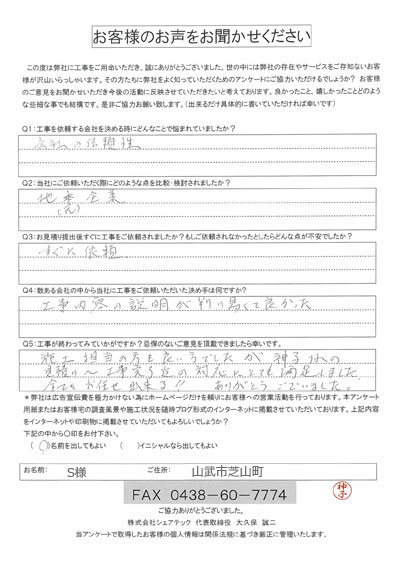 お客様のお声をお聞かせください
この度は弊社に工事をご用命いただき、誠にありがとうございました。世の中には弊社の存在やサービスをご存知ないお客
様が沢山いらっしゃいます。その方たちに弊社をよく知っていただくためのアンケートにご協力いただけるでしょうか？ お客様
のご意見をお聞かせいただき今後の活動に反映させていただきたいと考えております。良かったこと、嬉しかったことどのよう
な些細な事でも結構です。是非ご協力お願い致します。（出来るだけ具体的に書いていただければ幸いです）
Q1：工事を依頼する会社を決める時にどんなことで悩まれていましたか？
会社の信頼性
Q2：当社にご依頼いただく際にどのような点を比較・検討されましたか？
地産企業
(元)
Q3：お見積り提出後すぐに工事をご依頼されましたか？もしご依頼されなかったとしたらどんな点が不安でしたか？
すぐに依頼
Q4：数ある会社の中から当社に工事をご依頼いただいた決め手は何ですか？
工事内容の説明が判り易くて良かった
Q5：工事が終わってみていかがですか？忌憚のないご意見を頂戴できましたら幸いです。
施工担当の方も良い方でしたが 神子さんの
見積り〜工事完了迄の対応にとても満足しました
全てお任せ出来る!! ありがとうございました。
＊弊社は広告宣伝費を極力かけない為にホームページだけを頼りにお客様への営業活動を行っております。本アンケート
用紙またはお客様宅の調査風景や施工状況を随時ブログ形式のインターネットに掲載させていただいております。上記内容
をインターネットや印刷物に掲載させていただいてもよろしいでしょうか？
下記の中から〇印をお付下さい。
（〇）名前を出してもよい （ ）イニシャルなら出してもよい
お名前： S様 ご住所： 山武市芝山町
FAX 0438-60-7774
神子
ご協力ありがとうございました。
株式会社シェアテック 代表取締役 大久保 誠二
当アンケートで取得したお客様の個人情報は関係法規に基づき厳正に管理いたします。